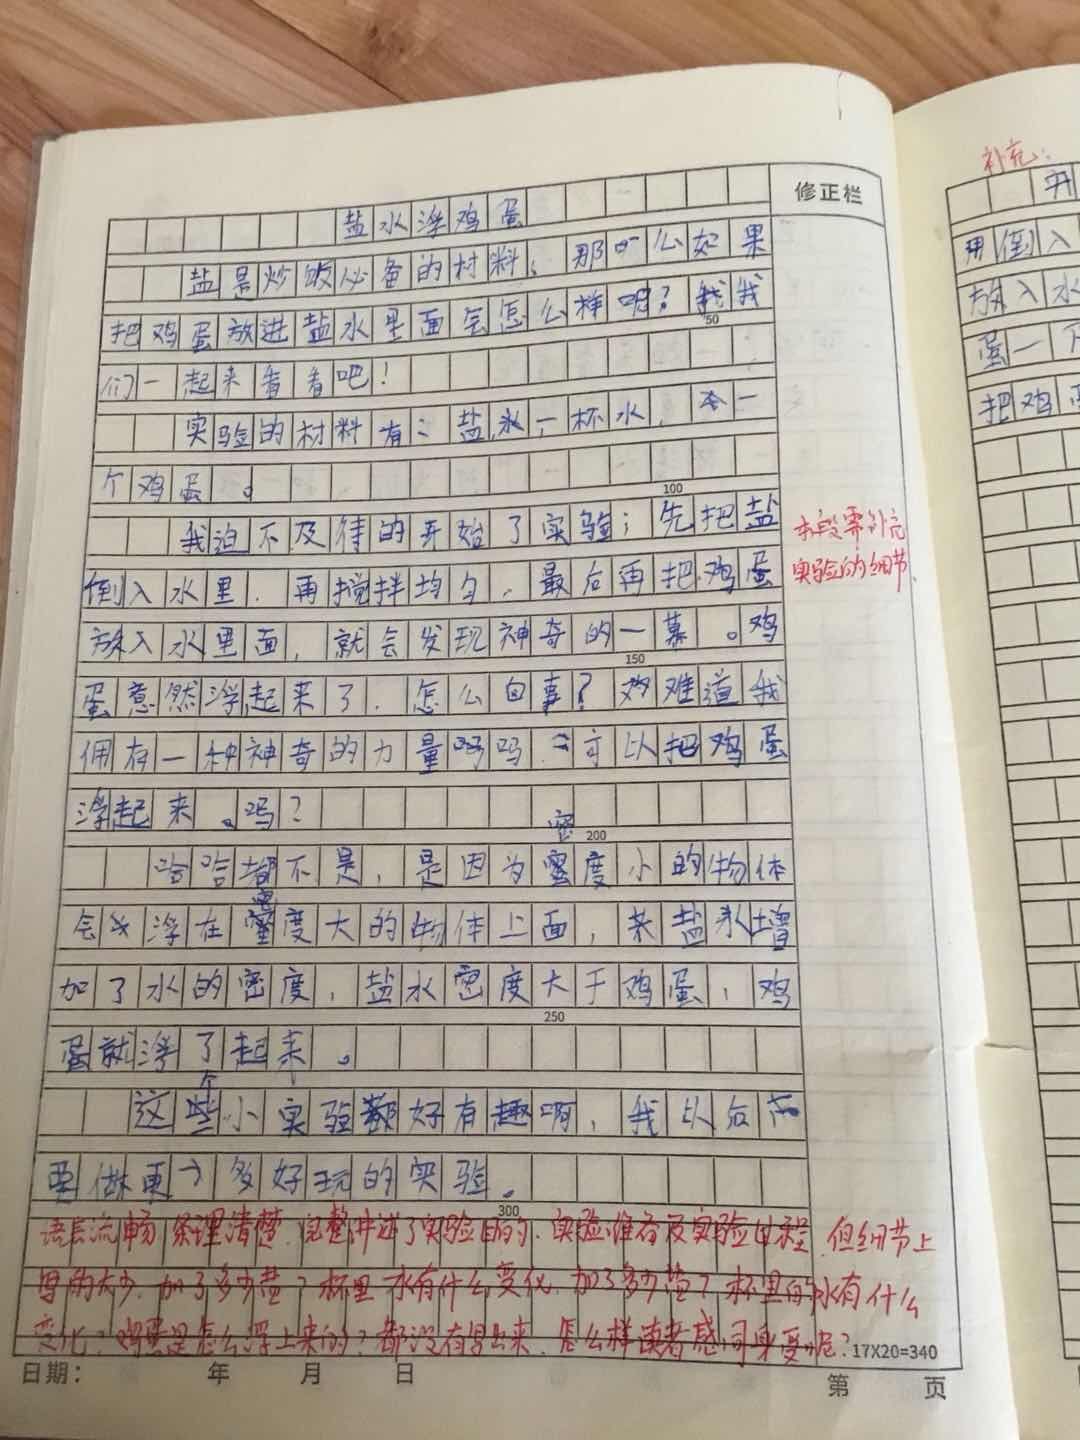 修正栏
盐水浮鸡蛋
盐是炒饭必备的材料,那么如果
把鸡蛋放进盐水里面会怎么样呢?我
50
们一起来看看吧!
实验的材料有:盐,一杯水,一
个鸡蛋。
100
我迫不及待的开始了实验;先把盐
倒入水里,再搅拌均匀,最后再把鸡蛋
放入水里面,就会发现神奇的一幕。鸡
150
蛋意然浮起来了,怎么回事?难道我
佣存一种神奇的力量吗 可以把鸡蛋
浮起来。吗?
200
哈哈都不是,是因为密度小的物体
会浮在密度大的物体上面,盐增
加了水的密度,盐水密度大于鸡蛋,鸡
250
蛋就浮了起来。
这个小实验好有趣啊,我以后
要做更多好玩的实验。
300
本段需补充
实验的细节
语言流畅,条理清楚,完整讲述了实验目的、实验准备及实验过程,但细节上
写的太少,加了多少盐?杯里水有什么变化,加了多少盐?杯里的水有什么
变化?鸡蛋是怎么浮上来的?都没有写出来,怎么样读者感同身受呢?
17X20=340
日期: 年 月 日
第 页
补充:
开
用倒入
放入水
蛋一
把鸡蛋